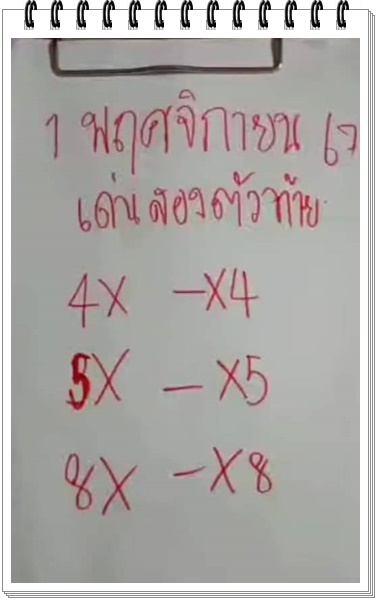 1 พฤศจิกายน 67
เด่นสองตัวท้าย
4X -X4
5X - X5
8X -X8